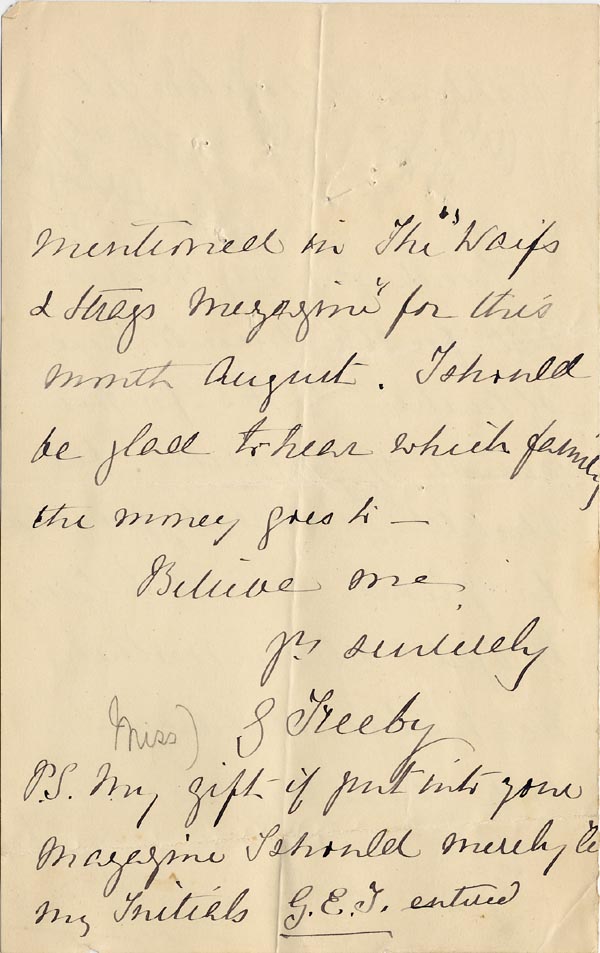 mentioned in The "Waifs
& Strays Magazine" for this
month August. I should
be glad to hear which family
the money goes to —
Believe me
yrs sincerely
Miss) G Treeby
P.S. My gift if put into your
Magazine I should merely
my Initials G.E.T. entered